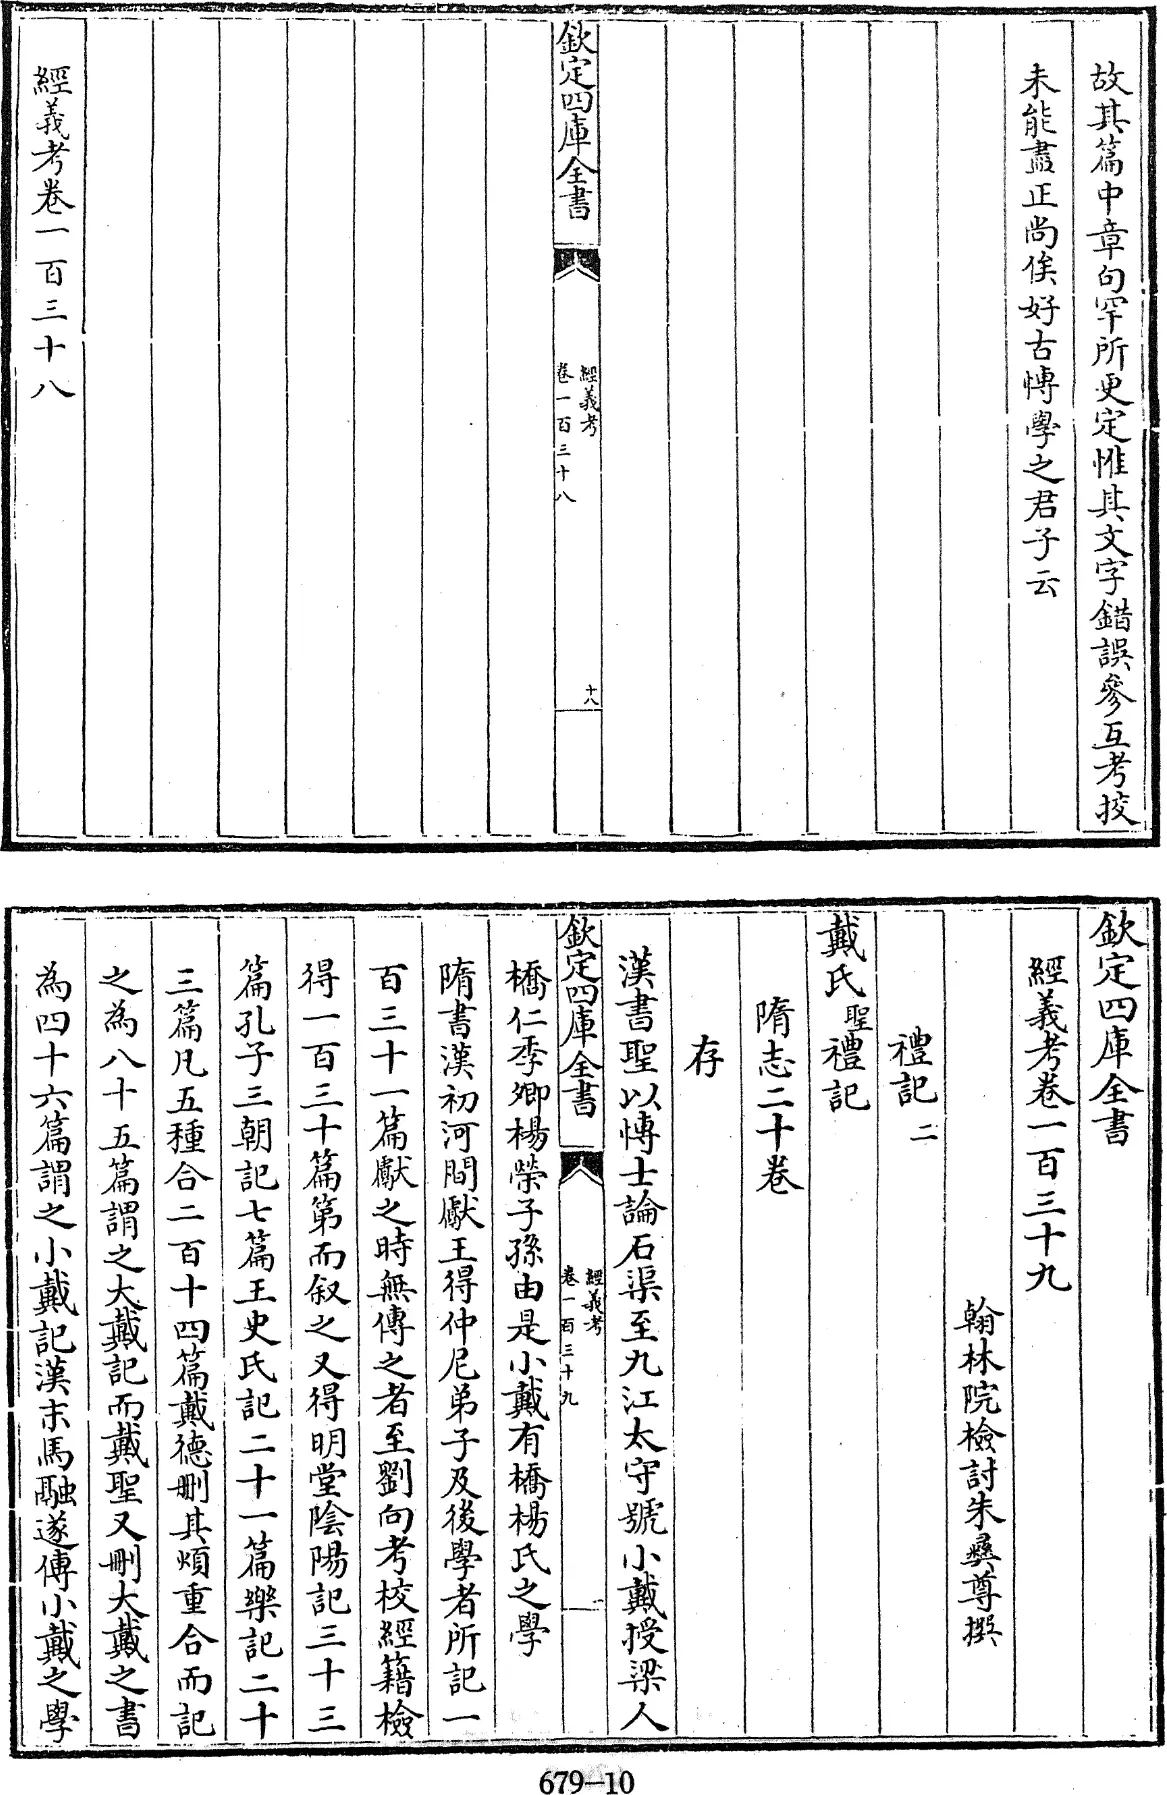 故其篇中章句罕所更定惟其文字錯誤參互考挍
未能盡正尚俟好古愽學之君子云
欽定四庫全書
經義考
卷一百三十八
十八
經義考卷一百三十八
欽定四庫全書
經義考卷一百三十九
翰林院檢討朱彞尊撰
禮記二
戴氏聖禮記
隋志二十卷
存
漢書聖以愽士論石渠至九江太守號小戴授梁人
欽定四庫全書
經義考
卷一百三十九
一
橋仁季卿楊榮子孫由是小戴有橋楊氏之學
隋書漢初河間獻王得仲尼弟子及後學者所記一
百三十一篇獻之時無傳之者至劉向考校經籍檢
得一百三十篇第而叙之又得明堂陰陽記三十三
篇孔子三朝記七篇王史氏記二十一篇樂記二十
三篇凡五種合二百十四篇戴德刪其煩重合而記
之為八十五篇謂之大戴記而戴聖又刪大戴之書
為四十六篇謂之小戴記漢末馬融遂傳小戴之學
679-10